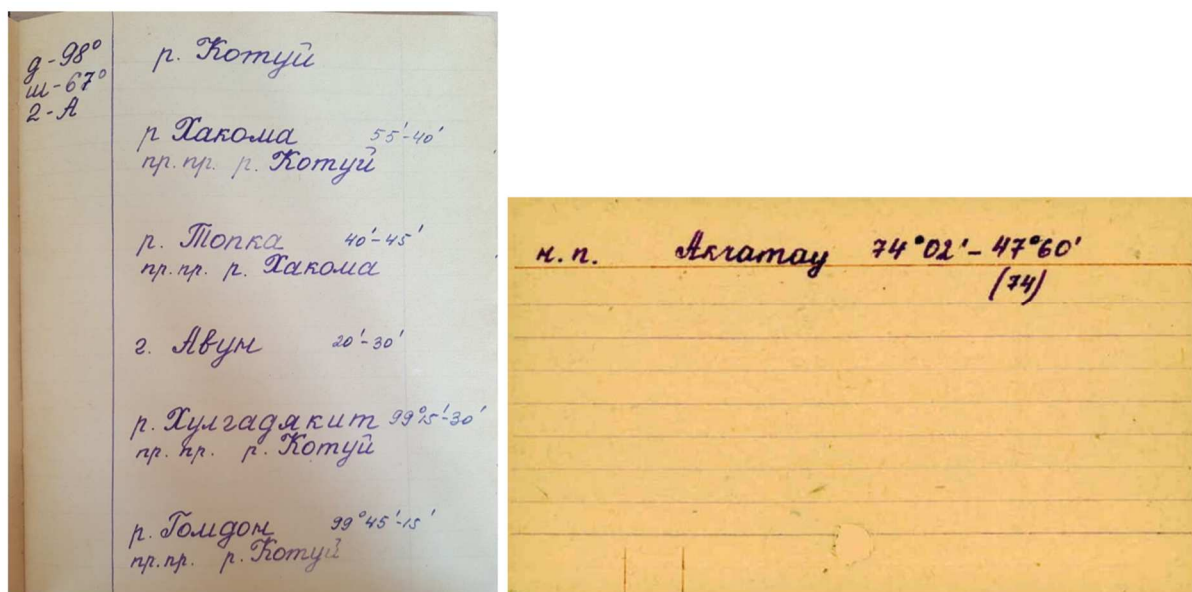 д-98°
ш-67°
2-А
р. Котуй
р Хакома 55'-40'
пр. пр. р. Котуй
р. Топка 40'-45'
пр. пр. р. Хакома
г. Авун 20'-30'
р. Хулгадякит 99°15'-30'
пр. пр. р. Котуй
р. Гомдон 99°45'-15'
пр. пр. р. Котуй
н. п. Акчатау 74°02'-47°60'
(74)